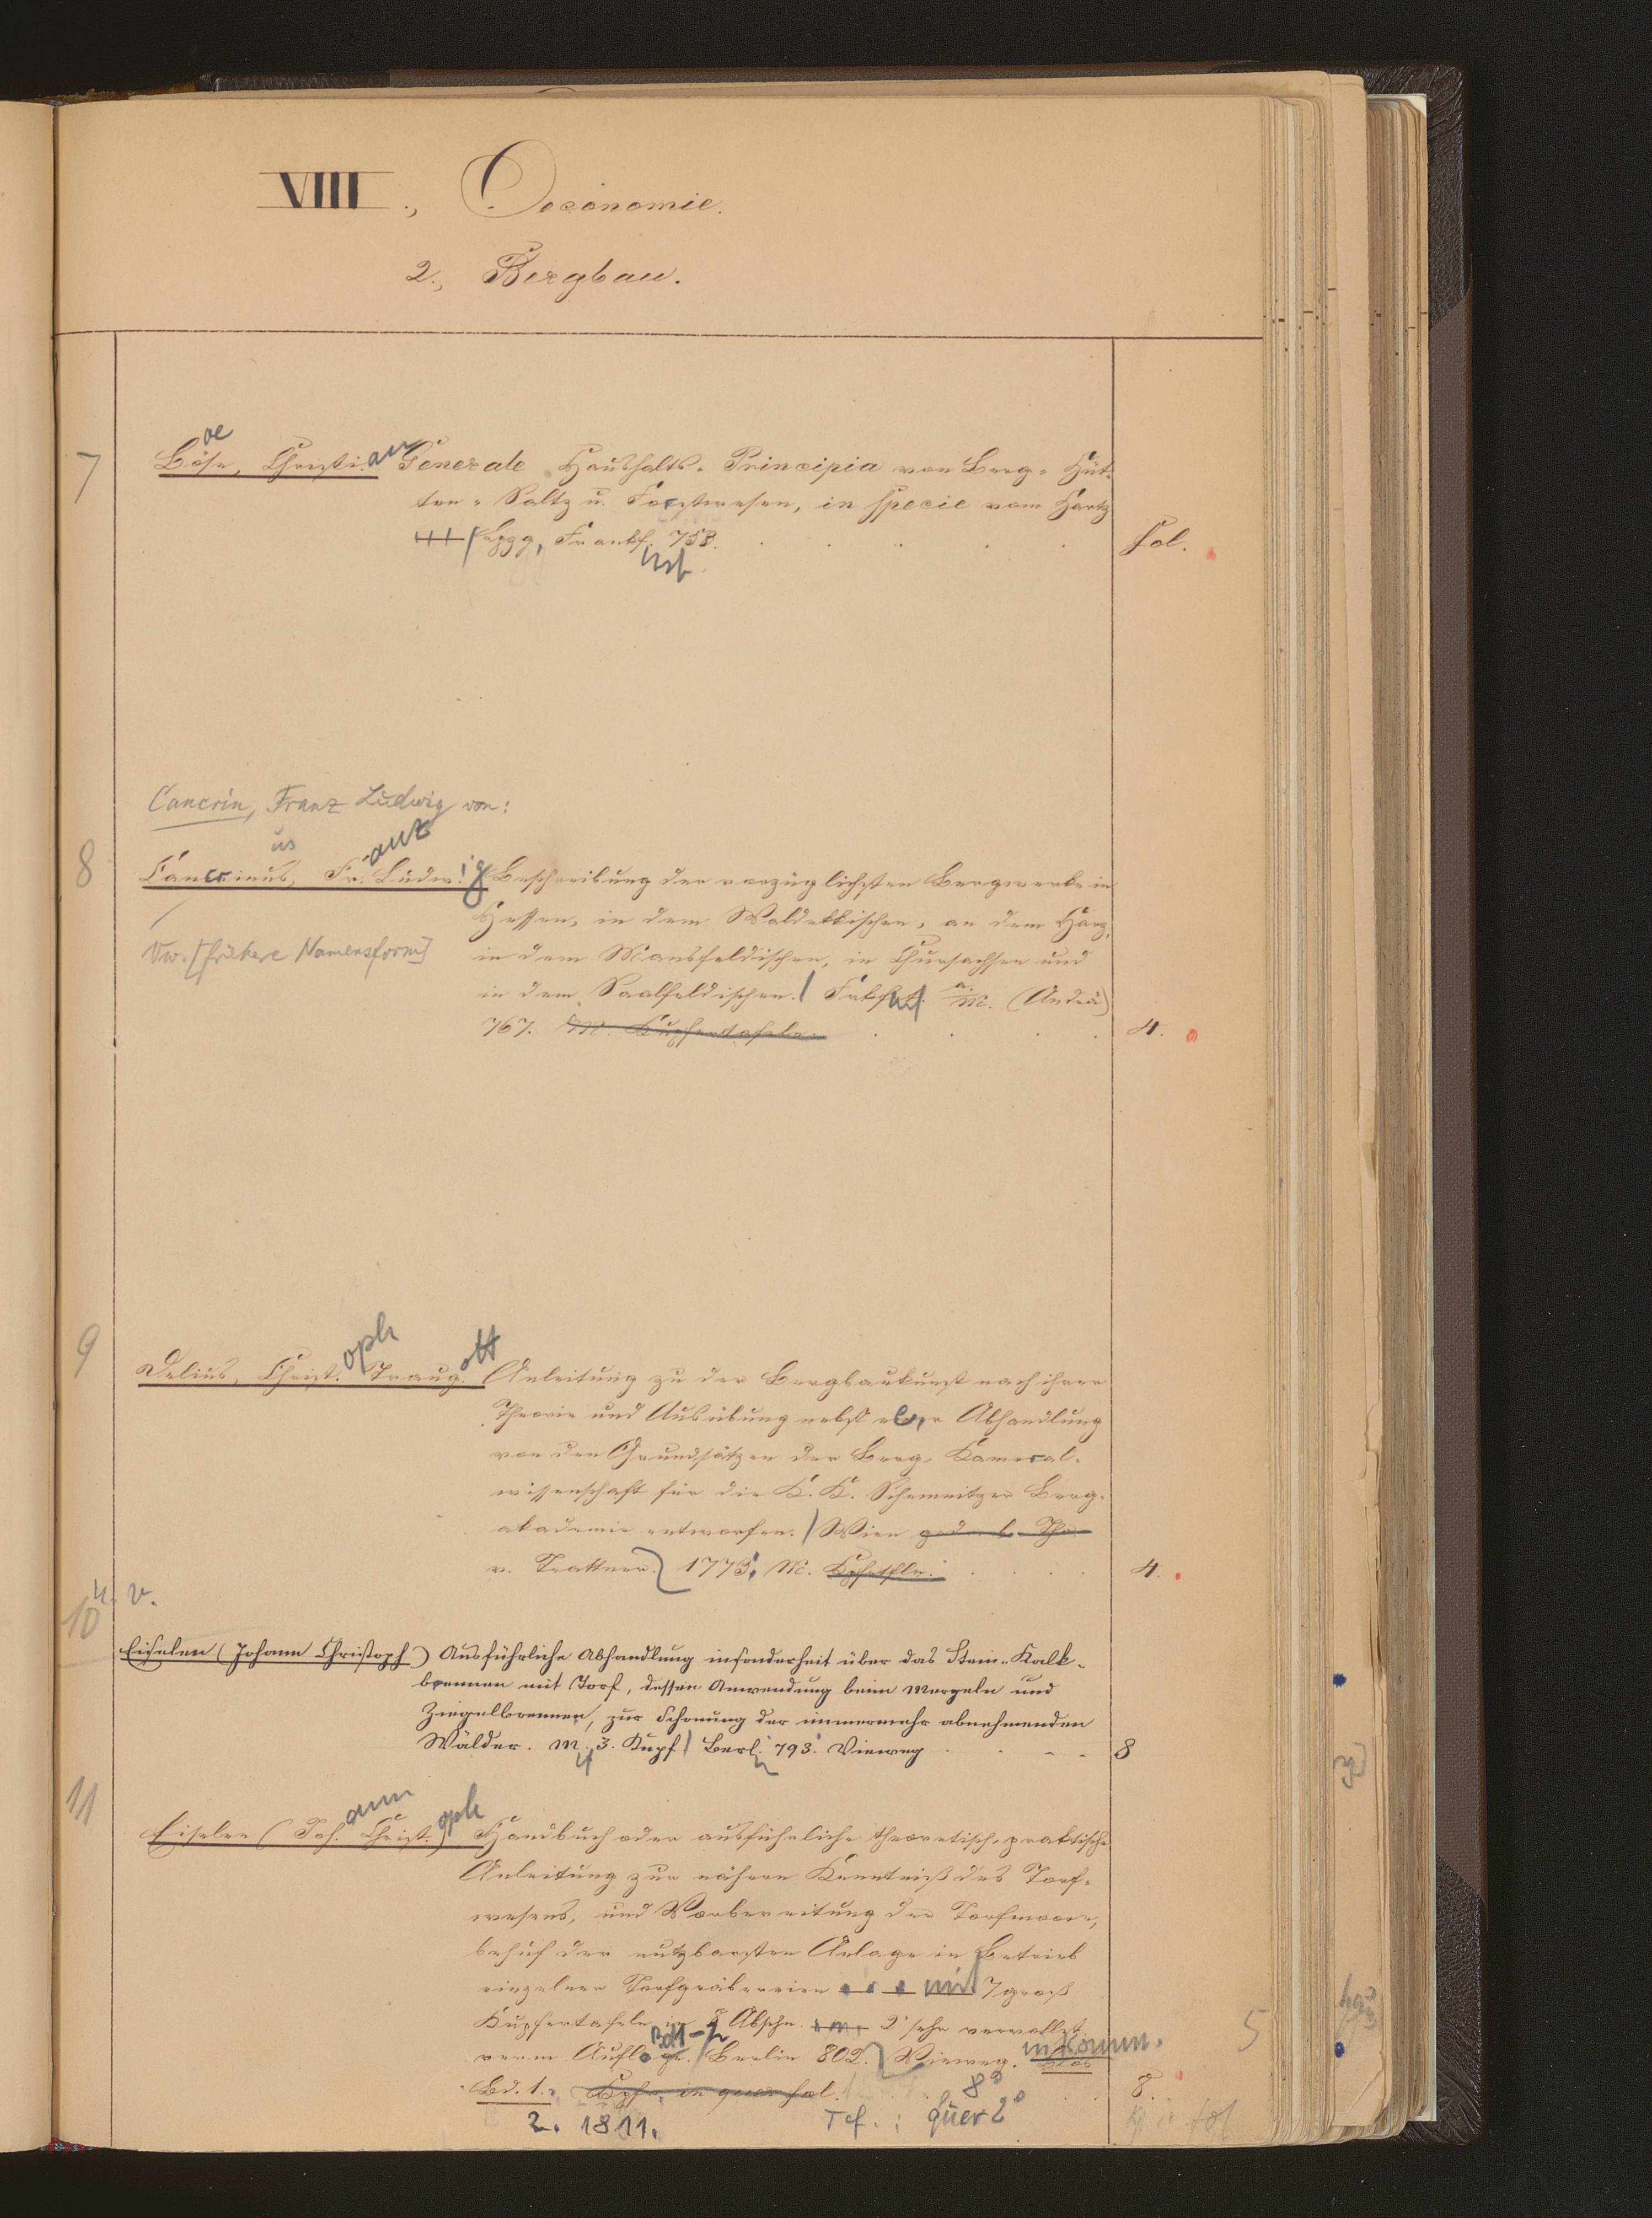 VIII., Oeconomie.
2., Bergbau.
7
oe
Böse, Christian Generale Haushalts-Principia von Berg- Hüt-
ten- Saltz u. Forstwesen, in specie vom Hartz
Lpzg, Frankf. 753. Fol.
Cancrin, Franz Ludwig von:
us
anz
8
Cancrinus, Fr. Ludwig Beschreibung der vorzüglichsten Bergwerke in
Hessen, in dem Waldekkischen, an dem Harz,
Vw. [frühere Namensform] in dem Mansfeldischen, in Chursachsen und
in dem Saalfeldischen. Frkft a. M. (Andrä)
767. M. Kupfertafeln 4.
9
oph ott
Delius, Christ. Traug. Anleitung zu der Bergbaukunst nach ihrer
Theorie und Ausübung nebst einer Abhandlung
von den Grundsätzen der Berg- Kameral-
wissenschaft für die K. K. Schemnitzer Berg-
akademie entworfen. Wien
v. Trattner 1773. M. Kpfrtfln. 4.
10 v.
Eiselen (Johann Christoph) Ausführliche Abhandlung insonderheit über das Stein-Kalk-
brennen mit Torf, dessen Anwendung beim Mergeln und
Ziegelbrennen, zur Schonung der immermehr abnehmenden
Wälder. M. 3. Kupf Berl. 793. Vieweg 8
11
ann oph
Eiselen (Joh. Christ.) Handbuch oder ausführliche theoretisch-praktische
Anleitung zur nähern Kenntniß des Torf-
wesens, und Vorbereitung der Torfmoore,
behuf der nutzbarsten Anlage in Betrieb
einzelner Torfgräbereien mit 7 groß
Kupfertafeln in 8 Abschn. 2. sehr vervollst
verm Aufl. Bd 1-2 Berlin 802. Vieweg. 5
Bd. 1. Kpfr. in quer fol. 8° 8.
2. 1811. Tef.: quer 2° fol